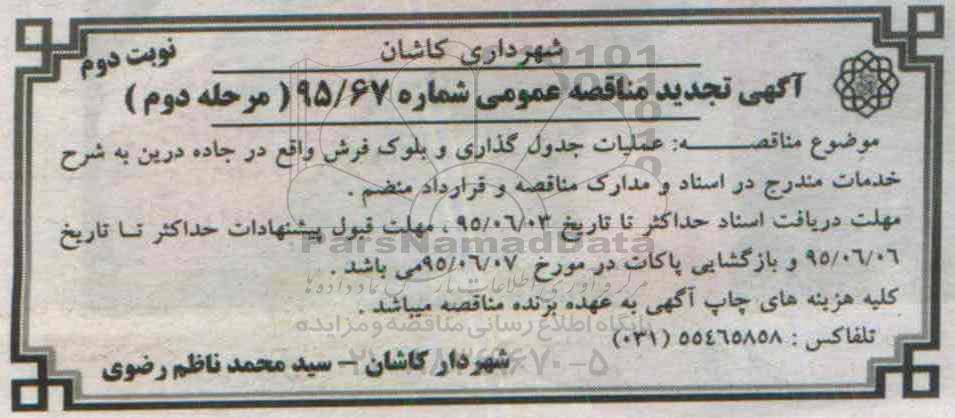 شهرداری کاشان
نوبت دوم
آگهی تجدید مناقصه عمومی شماره ۹۵/۶۷ ( مرحله دوم )
موضوع مناقصه: عملیات جدول گذاری و بلوک فرش واقع در جاده درین به شرح
خدمات مندرج در اسناد و مدارک مناقصه و قرارداد منضم .
مهلت دریافت اسناد حداکثر تا تاریخ ۹۵/۰۶/۰۳ ، مهلت قبول پیشنهادات حداکثر تا تاریخ
ParsNamadData
۹۵/۰۶/۰۶ و بازگشایی پاکات در مورخ ۹۵/۰۶/۰۷می باشد .
کلیه هزینه های چاپ آگهی به عهده برنده مناقصه میباشد .
پایگاه اطلاع رسانی مناقصه و مزایده
تلفاکس : ۵۵٤٦۵۸۵۸ (۰۳۱)
شهردار کاشان – سید محمد ناظم رضوی